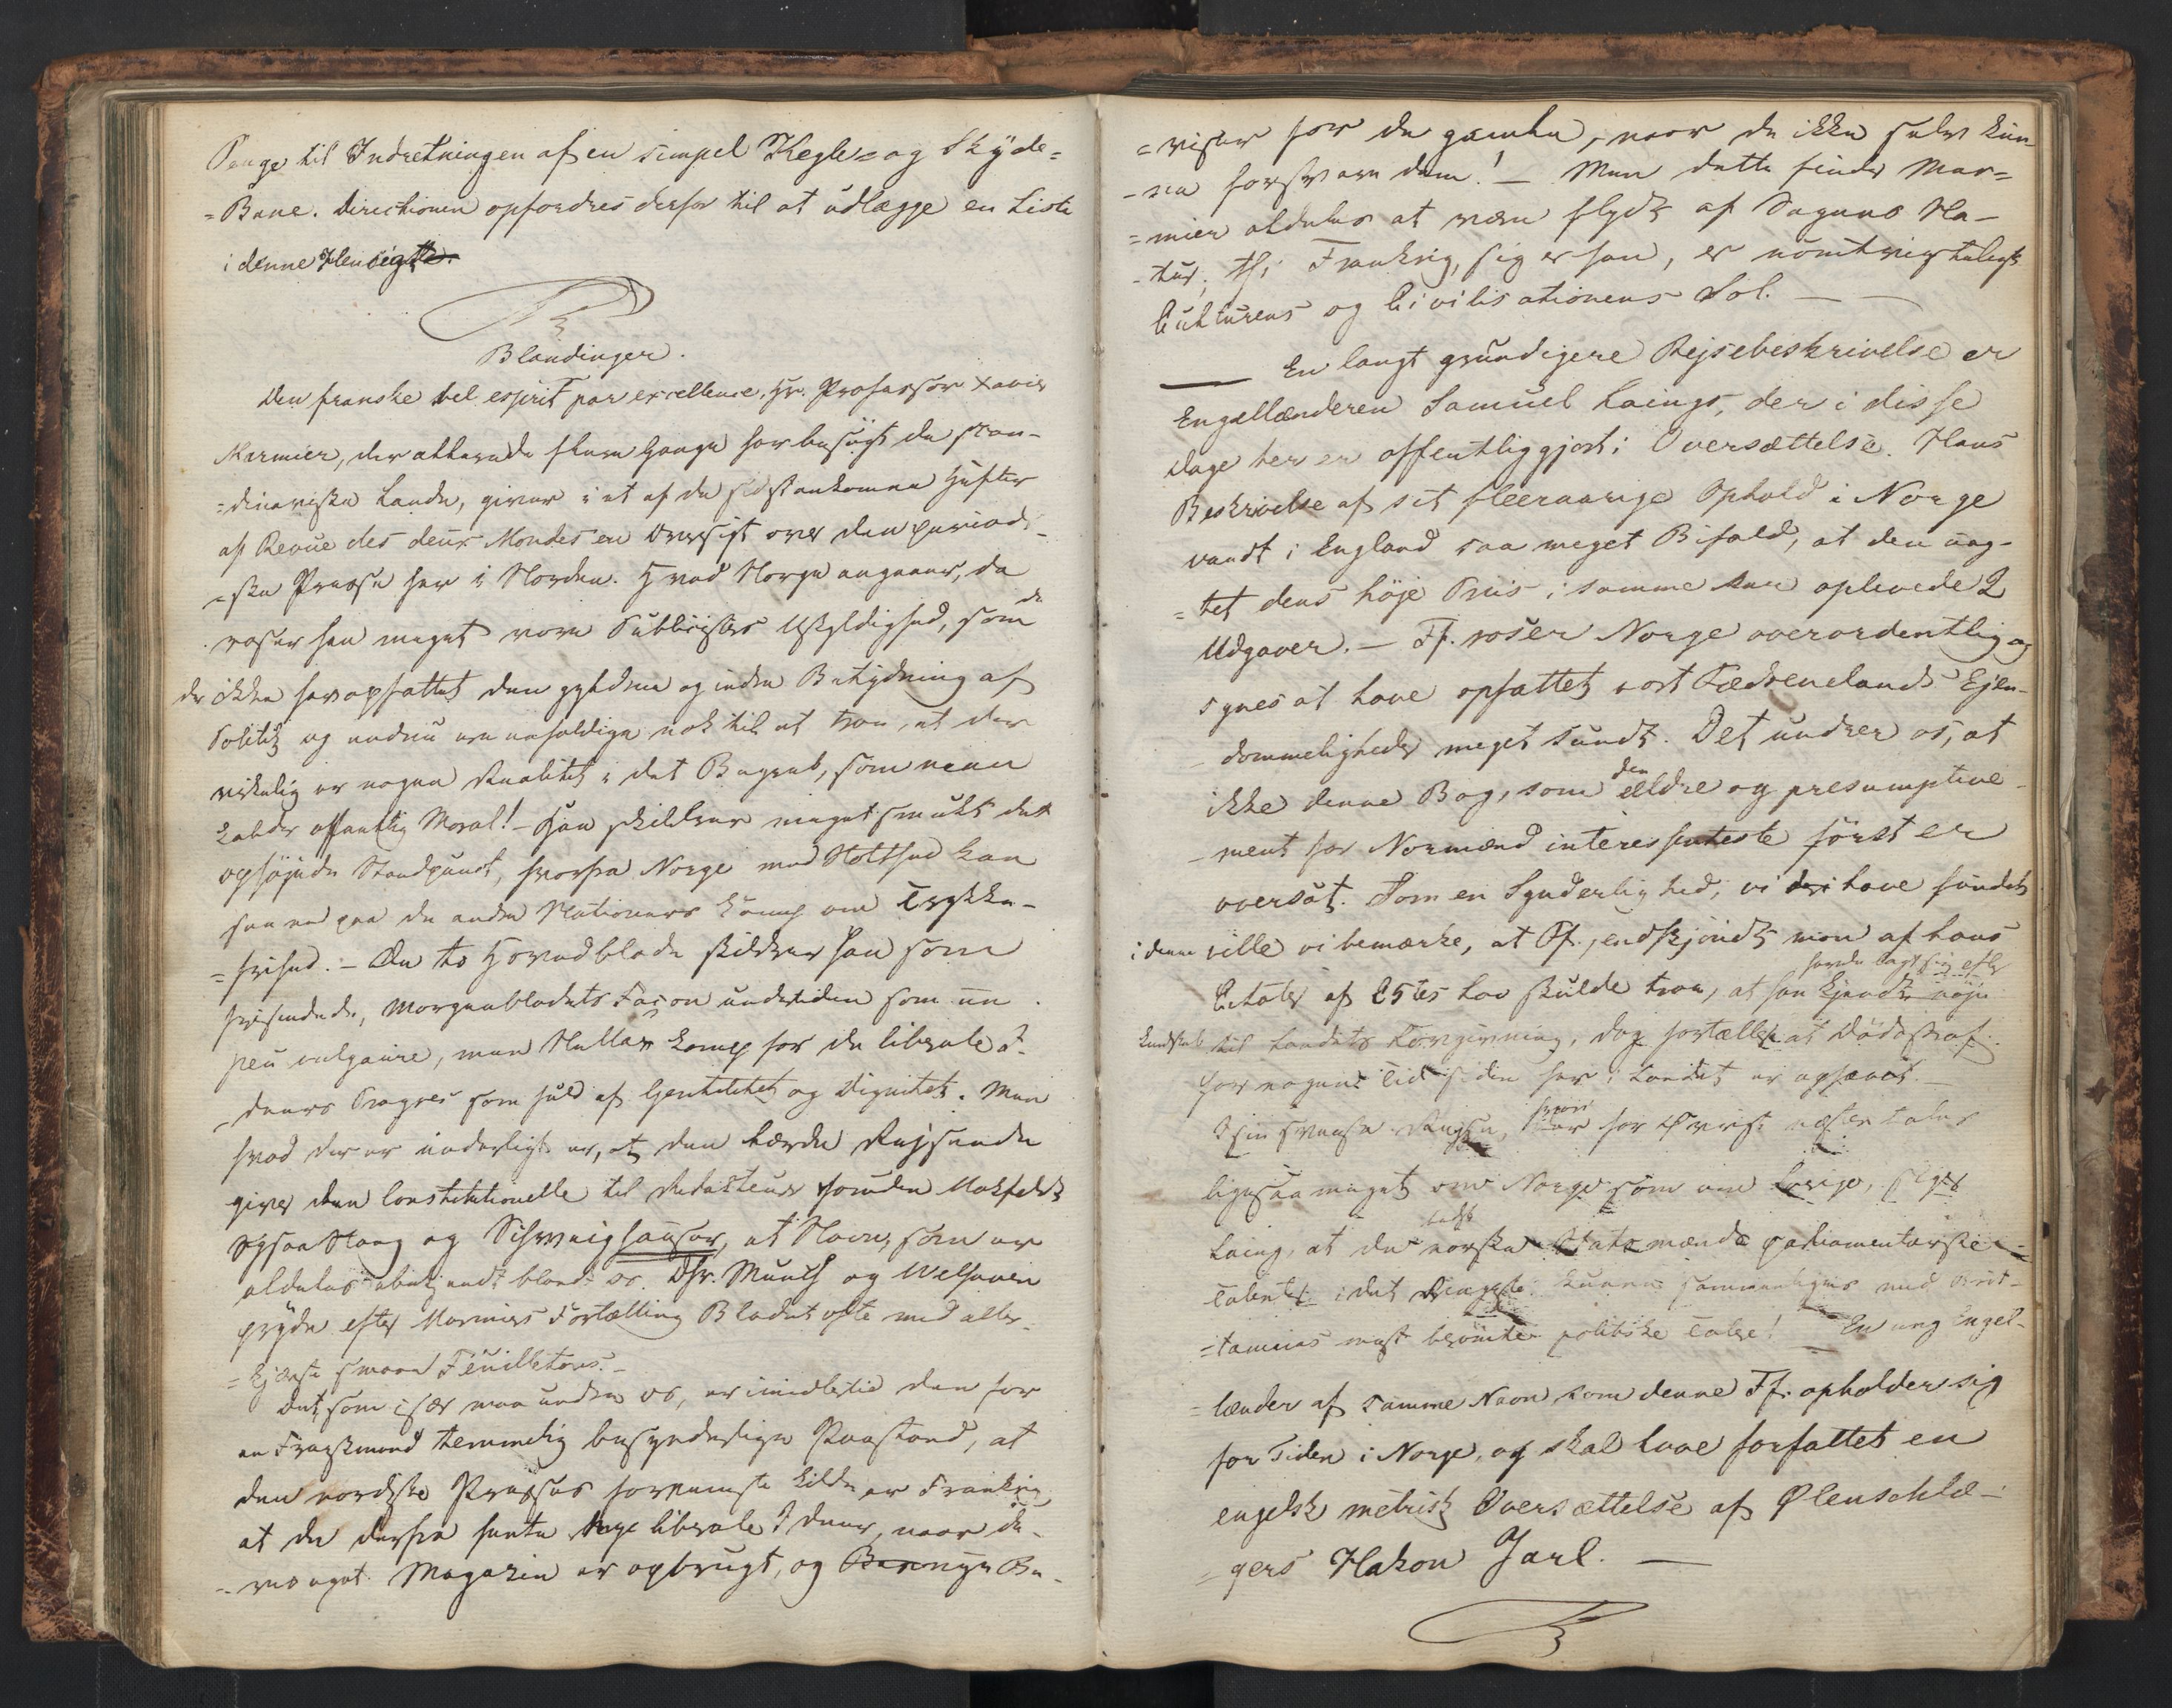 Penge til Indretningen af en simpel Kegle= og Skyde=
=Bane. Directionen opfordres derfor til at udlægge en Liste
i denne Hensigt.
Blandinger.
Den franske bel esprit par excellence, Hr. Professor Xavier
Marmier, der allerede flere Gange har besøgt de skan-
=dinaviske Lande, giver i et af de sidstankomne Hefter
af Revue des deux Mondes en Oversigt over den periodi-
=ske Presse her i Norden. Hvad Norge angaaer, da
roser han meget vore Publicisters Uskyldighed, som de
der ikke har opfattet den gyldne og indre Betydning af
Politik og endnu ere eenfoldige nok til at troe, at der
virkelig er nogen Realitet i det Begreb, som man
kalder offentlig Moral! – Han skildrer meget smukt det
ophøjede Standpunct, hvorfra Norge med Stolthed kan
see ned paa de andre Nationers Kamp om Trykke-
=frihed. – De to Hovedblade skildrer han som
frisindede, Morgenbladets Façon undertiden som un
peu vulgaire, men Kamp for de liberale I-
deers Progres som fuld af Gentilitet og Dignitet. Men
hvad der er underligt er, at den lærde Rejsende
giver den Constitutionelle til Redakteurer foruden
ogsaa Stang og Schweighauser, et Navn, som er
aldeles ubekjendt blandt os. DHr. Munch og Welhaven
pryde efter Marmiers Fortælling Bladet ofte med aller-
=kjæreste smaae Feuilletons. –
Det, som især maa undre os, er imidlertid den for
en Franskmand temmelig besynderlige Paastand, at
den nordiske Presses fornemste Kilde er Frankrig,
at de derfra hente nye liberale Ideer, naar de-
=res eget Magazin er opbrugt, og nye Be-
=viser for de gamle, naar de ikke selv kun-
-ne forsvare dem! – Men dette finder Mar=
=mier aldeles at være flydt af Sagens Na-
-tur; thi Frankrig, siger han, er uomtvisteligt
Culturens og Civilisationens Sol. —
— En langt grundigere Rejsebeskrivelse er
Engellænderen Samuel Laings, der i disse
Dage her er offentliggjort i Oversættelse. Hans
Beskrivelse af sit fleeraarige Ophold i Norge
vandt i England saa meget Bifald, at den uag-
=tet dens höje Priis i samme Aar oplevede 2
Udgaver. – Ff. roser Norge overordentlig og
synes at have opfattet vort Fædrenelands Ejen-
dommeligheder meget sundt. Det undrer os, at
ikke denne Bog, som den ældre og presumptive-
-ment for Normænd interessanteste först er
oversat. Som en Synderlighed, vi have fundet
i denne ville vi bemærke, at Ff., endskjöndt man af hans
Citater af Chr. 5tes Lov skulde troe, at han havde lagt sig efter
Kundskab til Landets Lovgivning, dog fortæller at Dödsstraf
for nogen Tid siden her i Landet er ophævet. –
I sin svenske Rejse, hvori han for Øvrigt næsten taler
ligesaa meget om Norge som om Sverige, siger
Laing, at de norske Statsmænds parliamentariske
Talenter i det ringeste kunne sammenlignes med Brit-
=taniens mest berömte politiske Talere! — En ung Engel-
=lænder af samme Navn som denne Ff. opholder sig
for Tiden i Norge, og skal have forfattet en
engelsk metrisk Oversættelse af Øhlenschlæ-
=gers Hakon Jarl. —